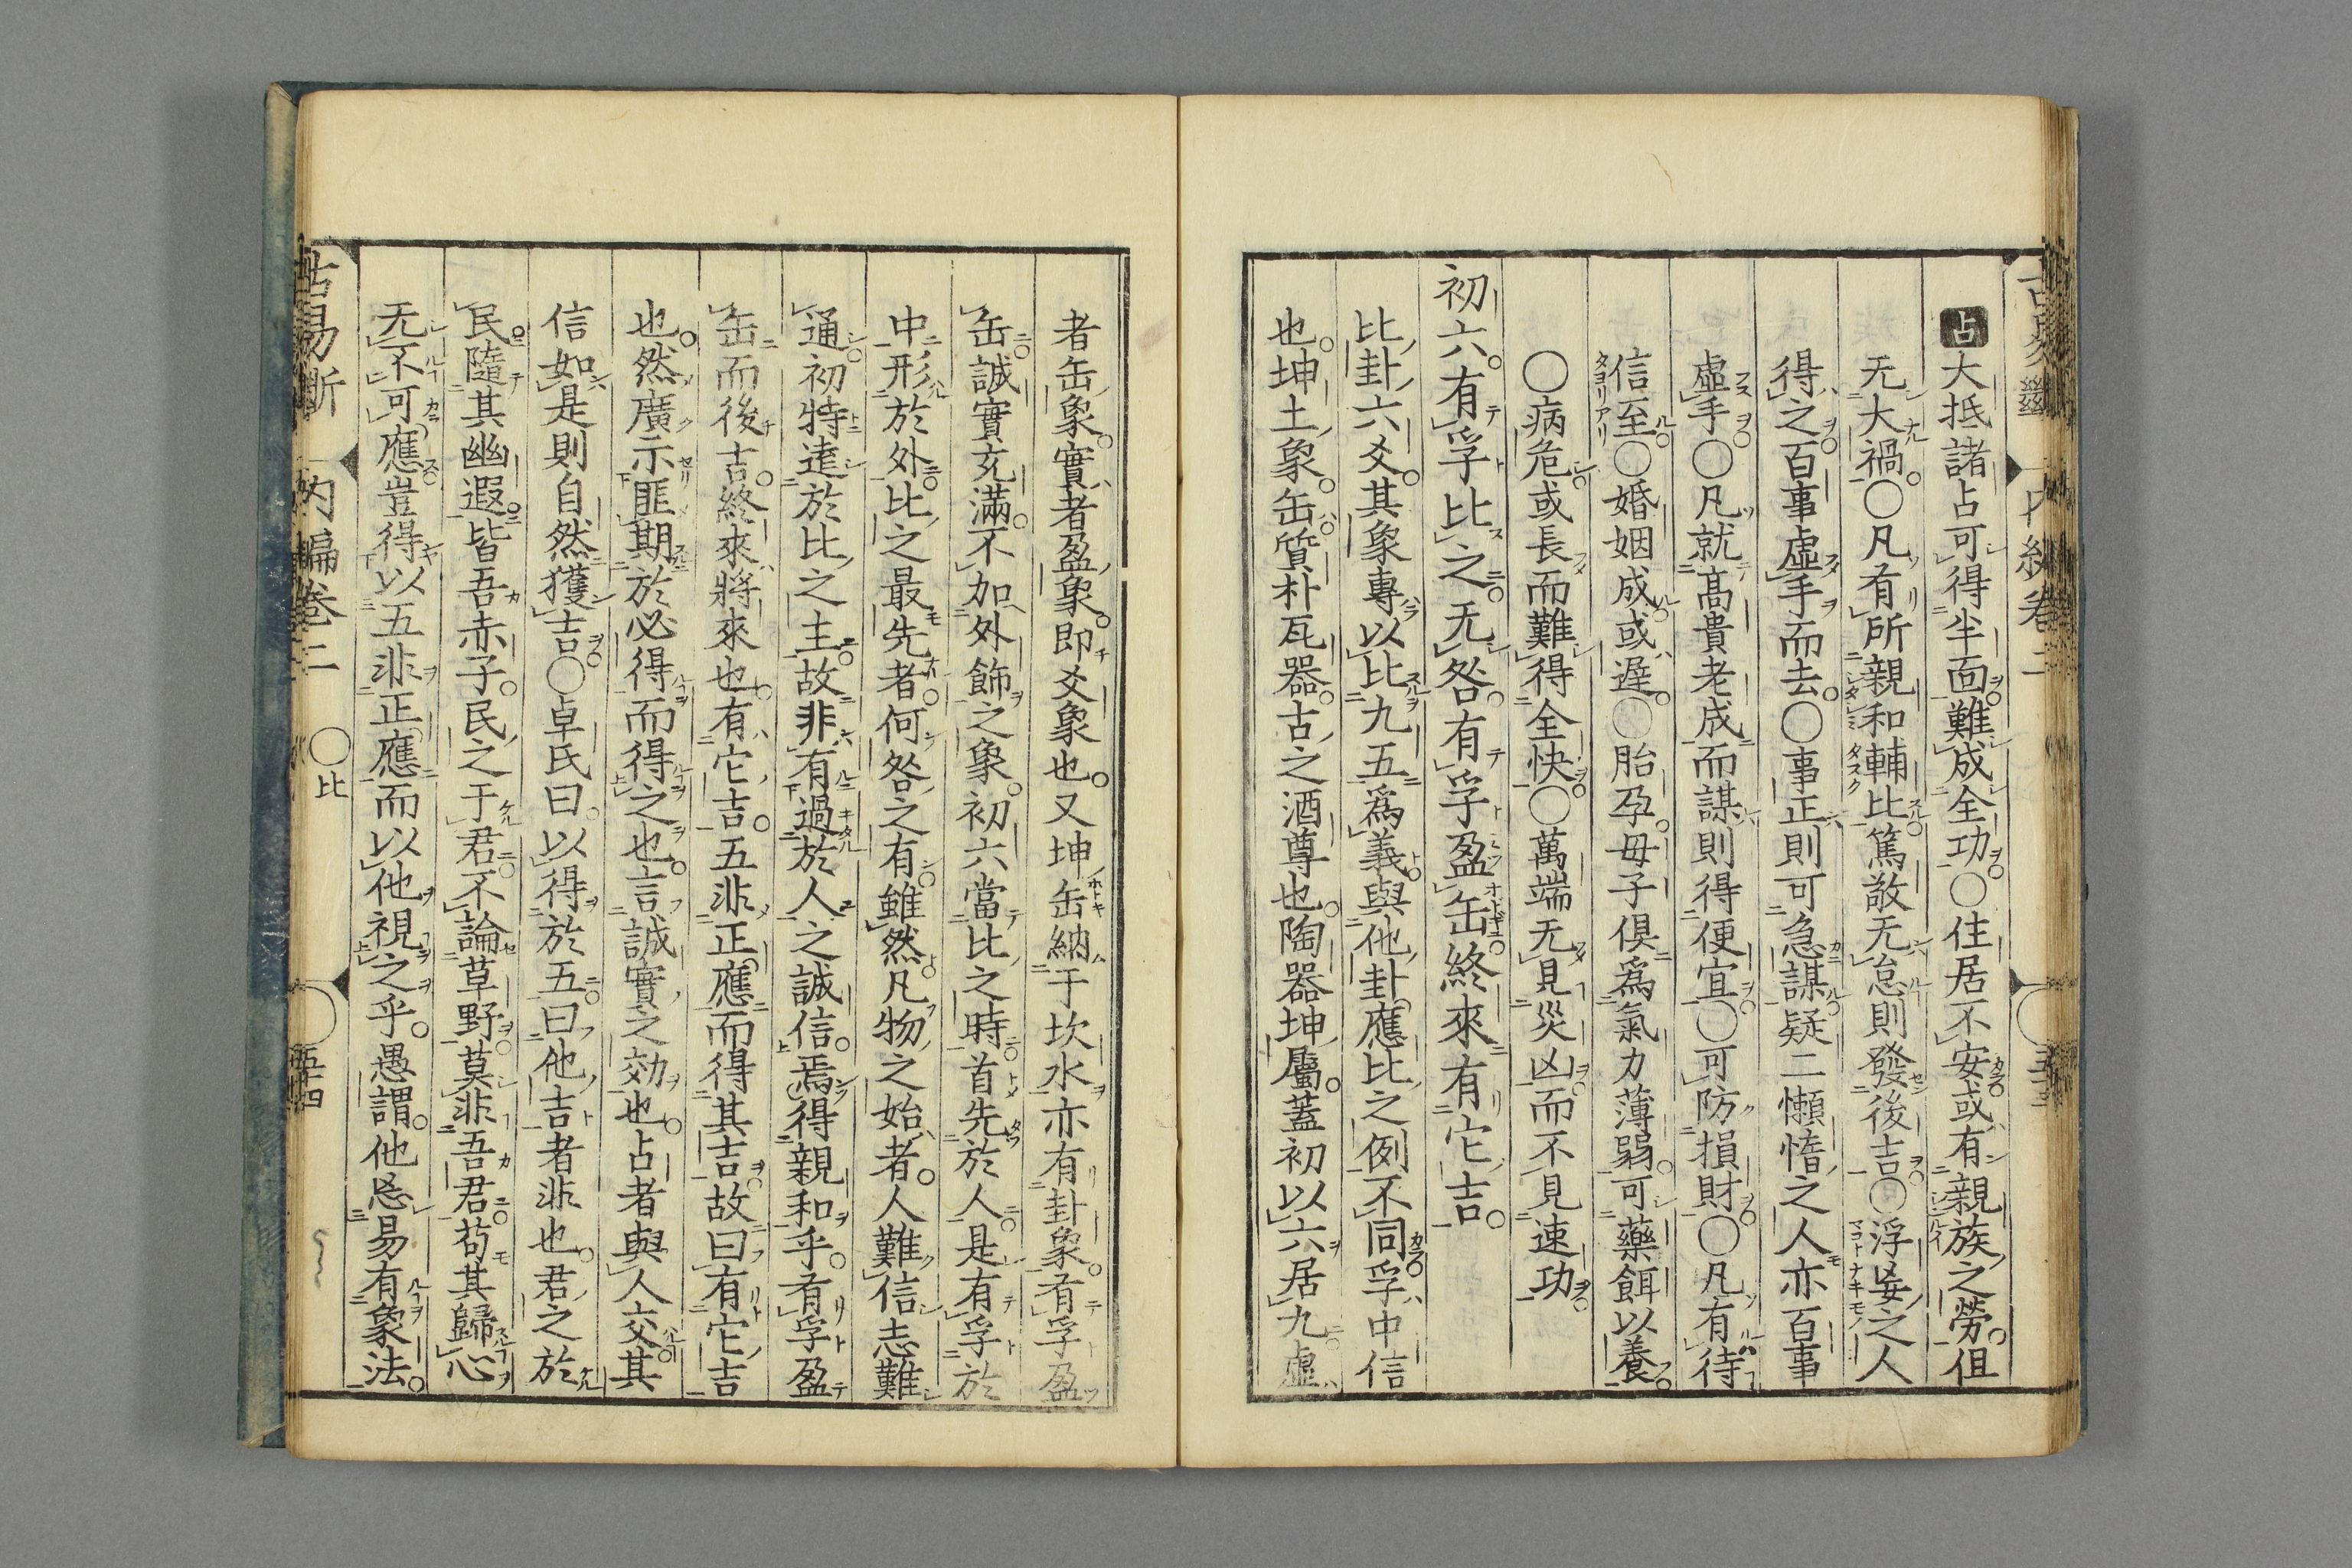 占大抵諸占可得半面難成全功〇住居不安或有親族之勞但
无大禍〇凡有所親和輔比篤敬无怠則發後吉〇浮妄之人
得之百事虛手而去〇事正則可急謀疑二懶惰之人亦百事
虛手〇凡就高貴老成而謀則得便宜〇可防損財〇凡有待
信至〇婚姻成或遲〇胎孕母子俱為氣力薄弱可藥餌以養
〇病危或長而難得全快〇萬端无見災凶而不見速功
初六有孚比之无咎有孚盈缶終來有它吉
比卦六爻其象專以比九五為義與他卦應比之例不同孚中信
也坤土象缶質朴瓦器古之酒尊也陶器坤屬蓋初以六居九虛
者缶象實者盈象即爻象也又坤缶納于坎水亦有卦象有孚盈
缶誠實充滿不加外飾之象初六當比之時首先於人是有孚於
中形於外比之最先者何咎之有雖然凡物之始者人難信志難
通初特遠於比之主故非有過於人之誠信焉得親和乎有孚盈
缶而後吉終來將來也有它吉五非正應而得其吉故曰有它吉
也然廣示匪期於必得而得之也言誠實之効也占者與人交其
信如是則自然獲吉〇卓氏曰以得於五曰他吉者非也君之於
民隨其幽遐皆吾赤子民之于君不論草野莫非吾君苟其歸心
无不可應豈得以五非正應而以他視之乎愚謂他恐易有象法
古易斷 內編卷二 〇比 五十四